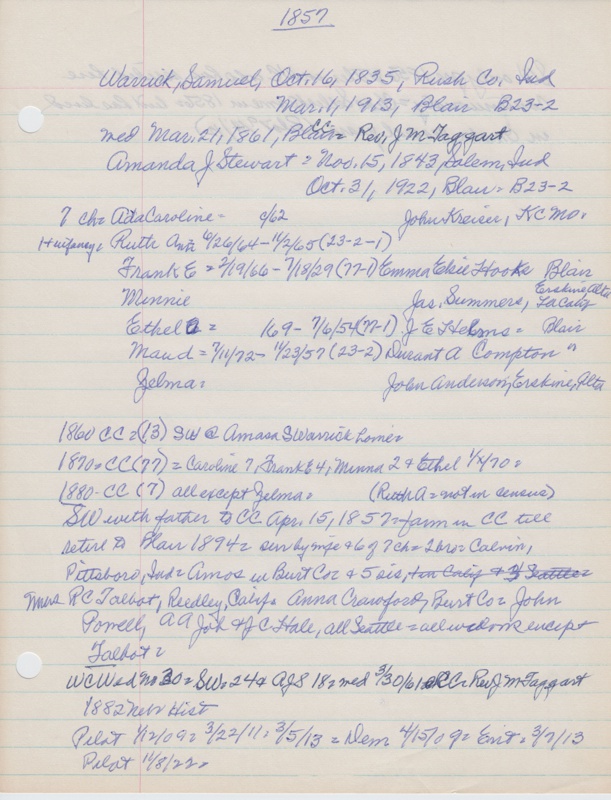 1857
Warrick, Samuel, Oct. 16, 1835, Rush Co. Ind
Mar. 1, 1913, Blair B23-2
med Mar. 21, 1861, Blair = CC = Rev. J M Taggart
Amanda J Stewart = Nov. 15, 1843, Salem, Ind
Oct. 31, 1922, Blair = B23-2
7 ch = Ada Caroline = c/62 John Kreiser, KC Mo.
1 + infancy = Ruth Ann 6/26/64 - 11/2/65 (23-2-1)
Frank E = 2/19/66 - 7/18/29 (77-1) Emma Elsie Hooke Blair
Minnie Jas. Summers, Erskine, Alta
Ethel = 169 - 7/6/54 (77-1) J E Helms = Blair
Maud = 7/11/72 - 11/23/57 (23-2) Durant A Compton "
Zelma = John Anderson, Erskine, Alta
1860 CC = (13) SW @ Amasa S Warrick home =
1870 = CC (77) = Caroline 7, Frank E 4, Minna 2 & Ethel 1/12/70 =
1880 - CC (7) all except Zelma = (Ruth A = not in census)
SW with father to CC Apr. 15, 1857 = farm in CC till
retire to Blair 1894 = sur by wife & 6 of 7 ch = 2 bro = Calvin,
Pittsboro, Ind = Amos in Burt Co = & 5 sis, in Calif & Seattle =
Mmes R C Talbot, Reedley, Calif = Anna Crawford, Burt Co = John
Powell, A A & J C Hale, all Seattle = all widows except
Talbot =
WC Wed No 30 = SW = 24 & AJS 18 = med 3/30/61 CC = Rev J M Taggart
1882 Nebr Hist
Pilot 1/12/09 = 3/22/11 = 3/5/13 = Dem 4/15/09 = Ent = 3/7/13
Pilot 11/8/22 =